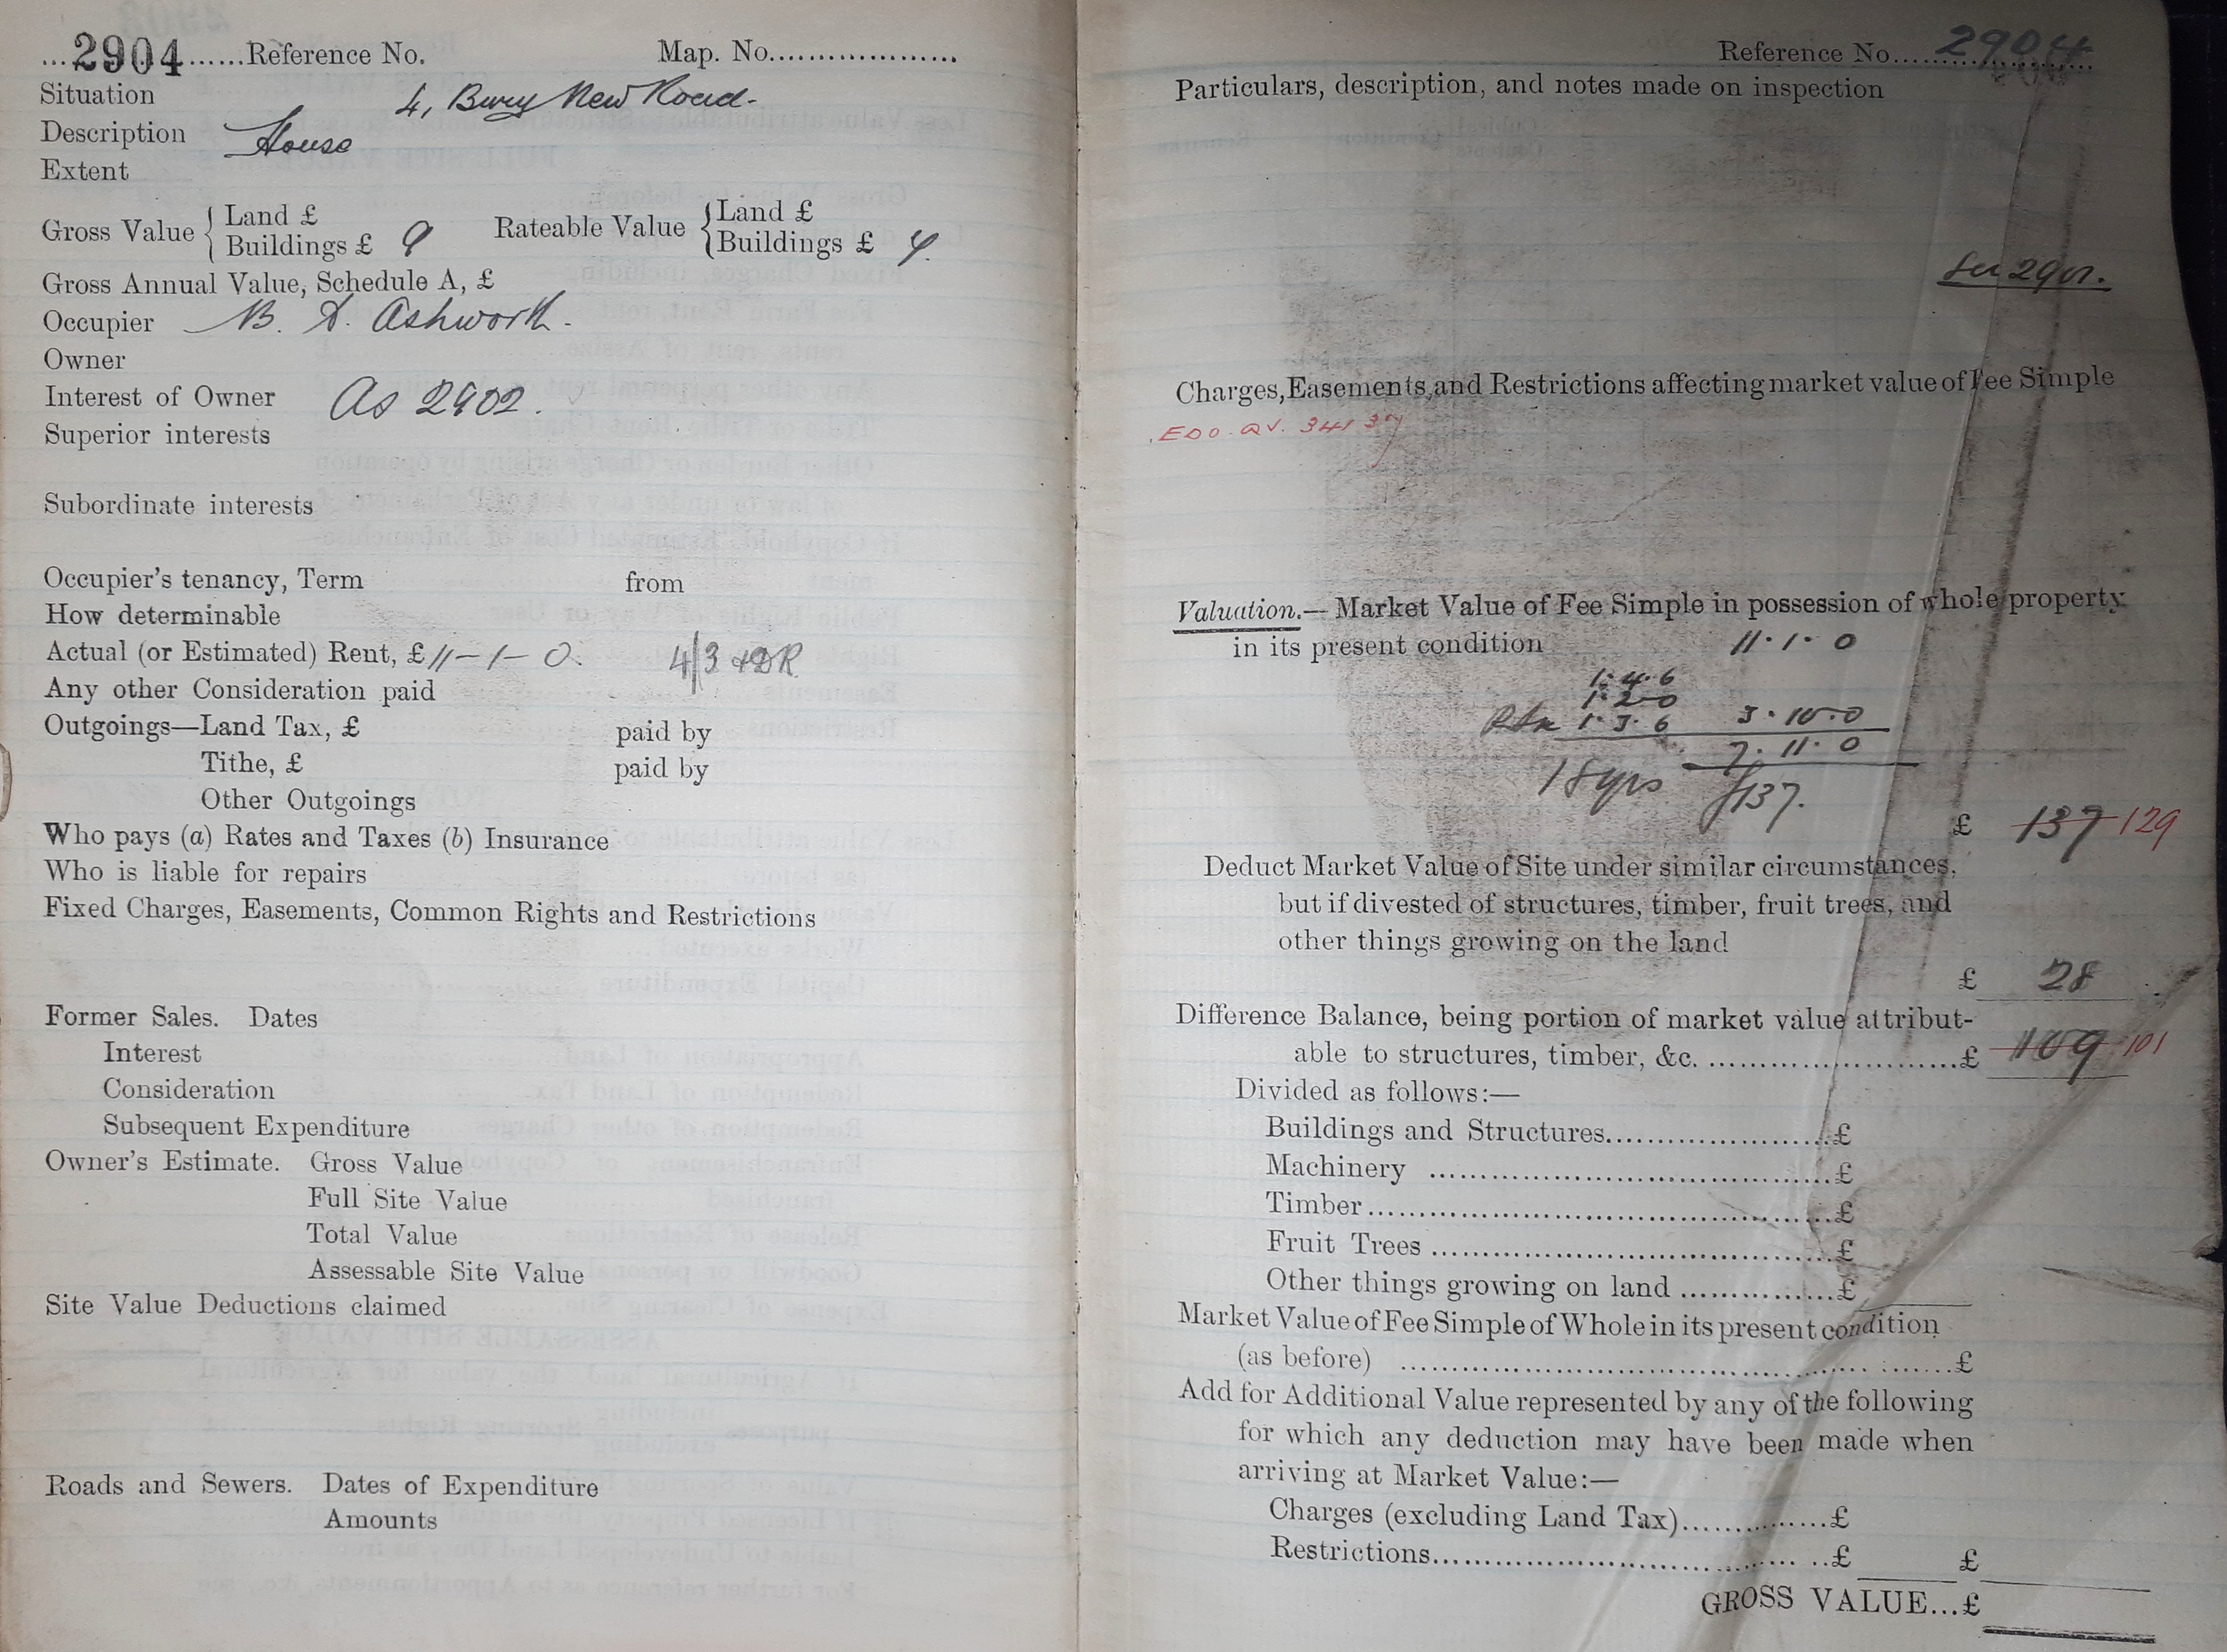 ...2904......Reference No. Map. No...................
Situation 4, Bury New Road.
Description House
Extent
Gross Value { Land £ Rateable Value { Land £
Buildings £ 9 Buildings £ 7.
Gross Annual Value, Schedule A, £
Occupier B. A. Ashworth.
Owner
Interest of Owner As 2902.
Superior interests
Subordinate interests
Occupier's tenancy, Term from
How determinable
Actual (or Estimated) Rent, £ 11-1-0. 4/3 DR
Any other Consideration paid
Outgoings—Land Tax, £ paid by
Tithe, £ paid by
Other Outgoings
Who pays (a) Rates and Taxes (b) Insurance
Who is liable for repairs
Fixed Charges, Easements, Common Rights and Restrictions
Former Sales. Dates
Interest
Consideration
Subsequent Expenditure
Owner's Estimate. Gross Value
Full Site Value
Total Value
Assessable Site Value
Site Value Deductions claimed
Roads and Sewers. Dates of Expenditure
Amounts
Reference No. 2904
Particulars, description, and notes made on inspection
See 2901.
Charges, Easements, and Restrictions affecting market value of Fee Simple
Valuation.— Market Value of Fee Simple in possession of whole property
in its present condition 11.1.0
1.4.6
1.2-0
1.3.6 3.10.0
7.11.0
18yrs £137.
£ 137 129
Deduct Market Value of Site under similar circumstances,
but if divested of structures, timber, fruit trees, and
other things growing on the land
£ 28
Difference Balance, being portion of market value attribut-
able to structures, timber, &c. ..........................£ 109 101
Divided as follows:—
Buildings and Structures......................£
Machinery .........................................£
Timber...............................................£
Fruit Trees ........................................£
Other things growing on land ...............£
Market Value of Fee Simple of Whole in its present condition
(as before) .......................................................£
Add for Additional Value represented by any of the following
for which any deduction may have been made when
arriving at Market Value:—
Charges (excluding Land Tax)...............£
Restrictions........................................£ £
GROSS VALUE...£